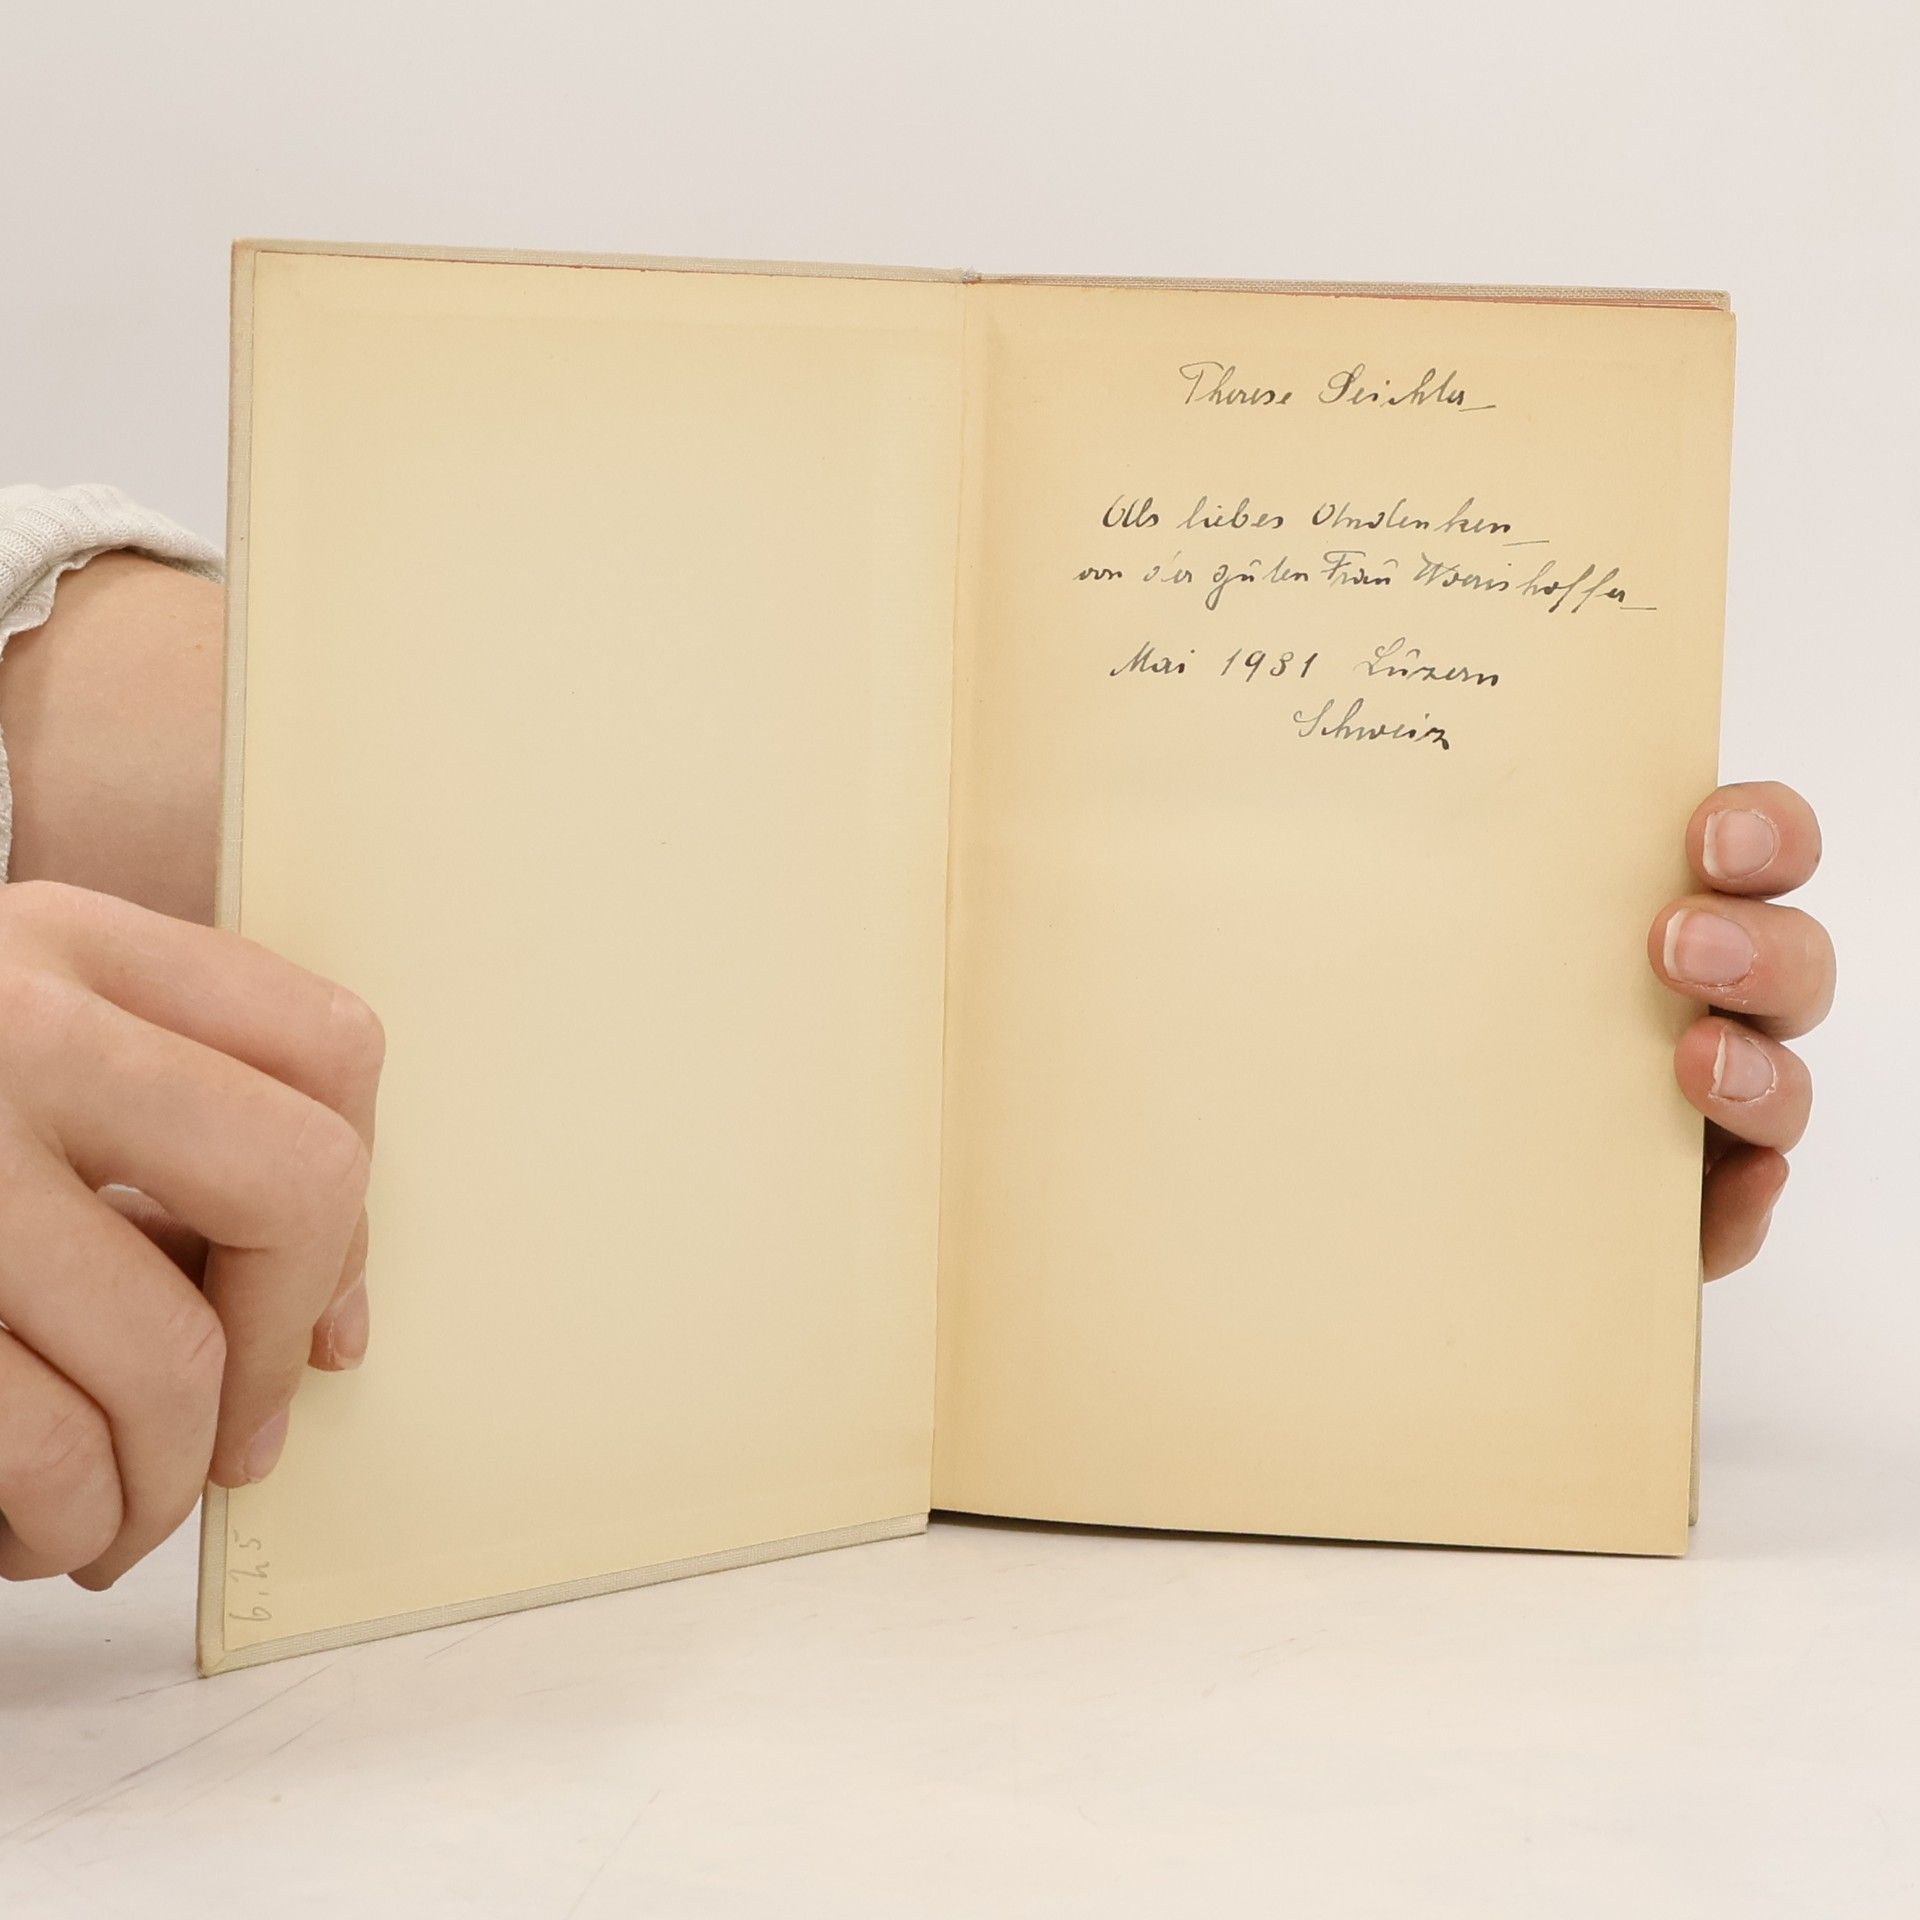 Therese Seichter
Als liebes Andenken
von der guten Frau Woerishoffer
Mai 1931 Luzern
Schweiz